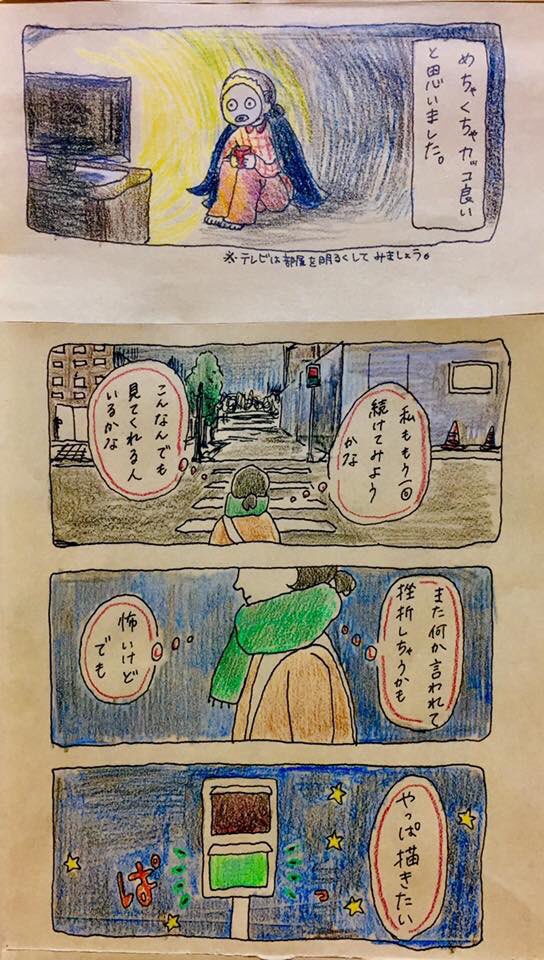 めちゃくちゃカッコ良い
と思いました。
※テレビは部屋を明るくしてみましょう。
私ももう一回
続けてみよう
かな
こんなんでも
見てくれる人
いるかな
また何か言われて
挫折しちゃうかも
怖いけど
でも
やっぱ描きたい
ぱっ